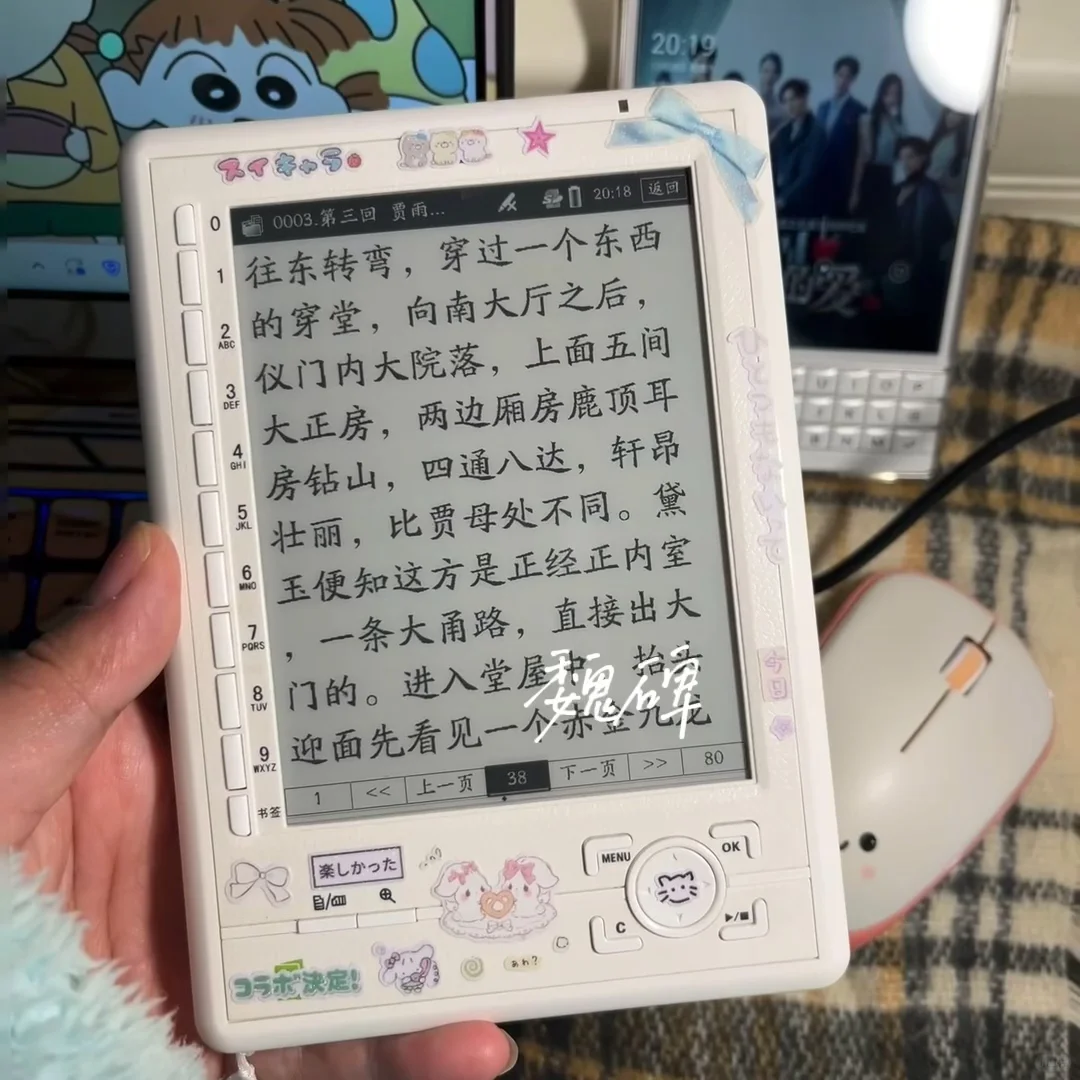 20:19
スイキャラ
0003.第三回 贾雨... 20:18 返回
往东转弯，穿过一个东西
的穿堂，向南大厅之后，
仪门内大院落，上面五间
大正房，两边厢房鹿顶耳
房钻山，四通八达，轩昂
壮丽，比贾母处不同。黛
玉便知这方是正经正内室
，一条大甬路，直接出大
门的。进入堂屋中，抬头
迎面先看见一个赤金九龙
魏碑
1 << 上一页 38 下一页 >> 80
0
1
2
ABC
3
DEF
4
GHI
5
JKL
6
MNO
7
PQRS
8
TUV
9
WXYZ
书签
楽しかった
MENU
OK
C
コラボ決定!
あれ?
今日